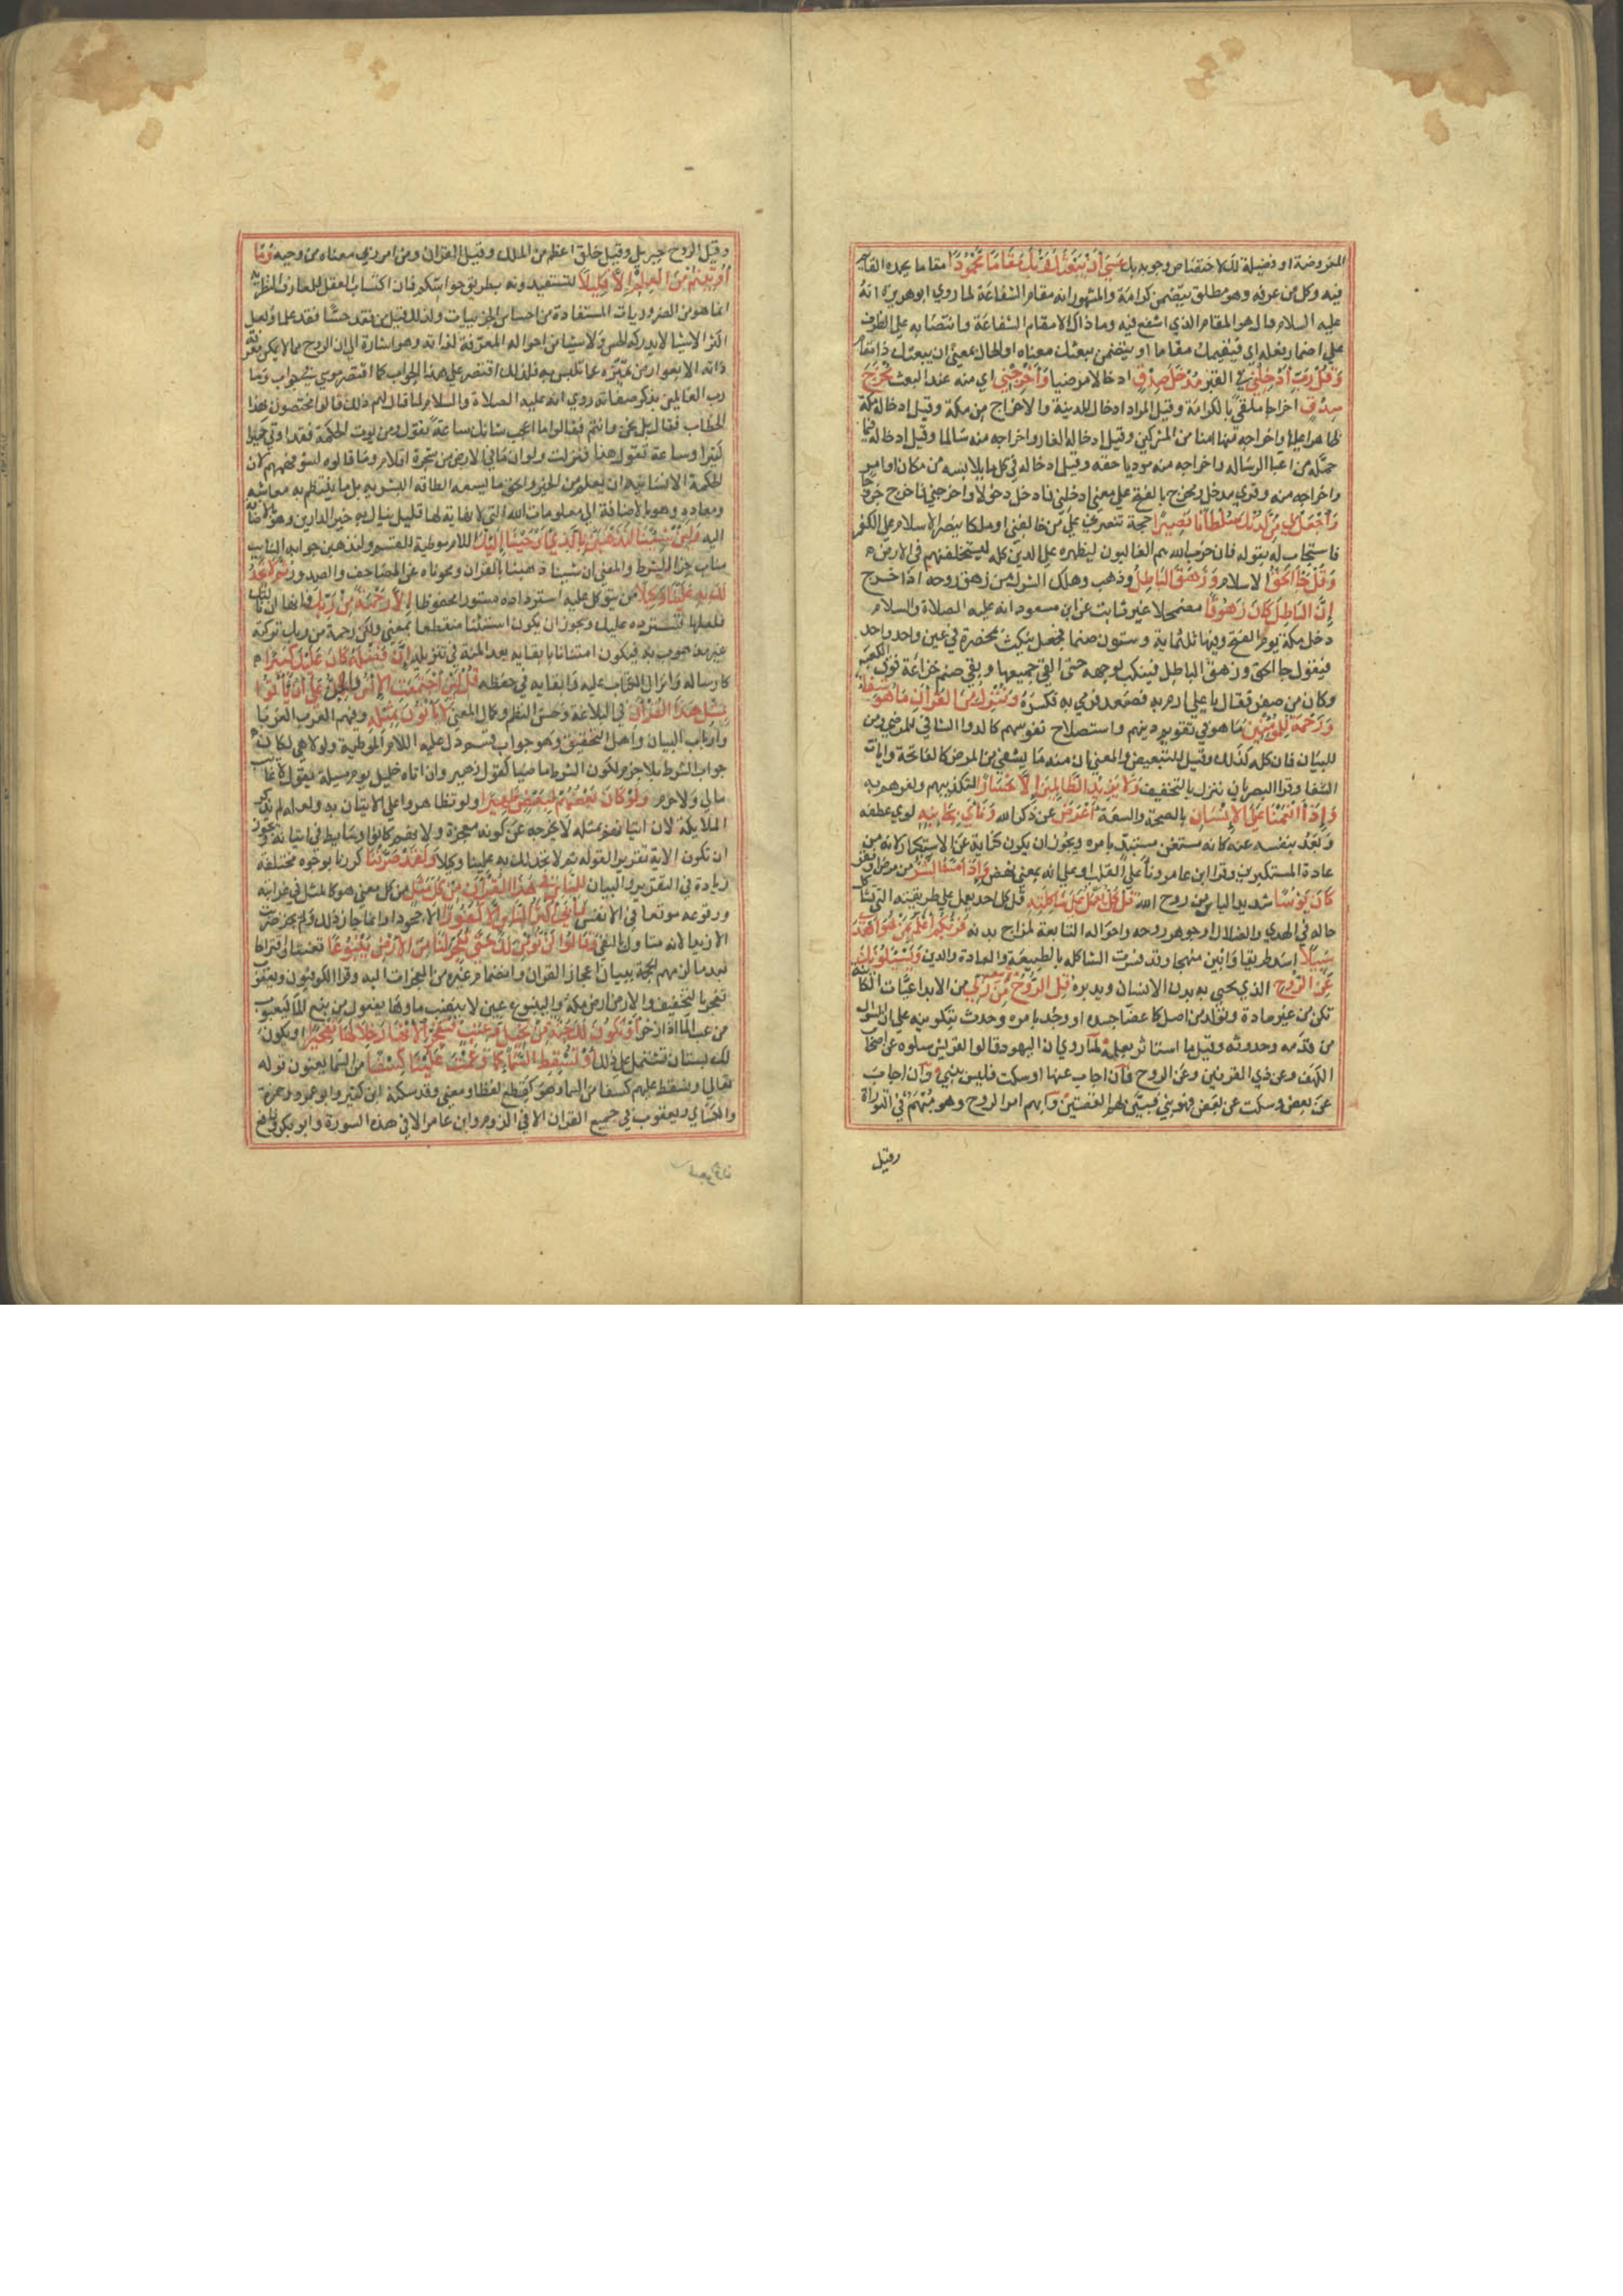 المفروضة او فضيلة لك لاختصاص وجوبه بك عَسَى أَنْ يَبْعَثَكَ رَبُّكَ مَقَامًا مَحْمُودًا مقاما يحمده القايم
فيه وكل من عرفه وهو مطلق يتضمن كرامة والمشهور انه مقام الشفاعة لما روي ابو هريرة انه
عليه السلام قال هو المقام الذي اشفع فيه وما ذاك الا مقام الشفاعة وانتصابه على الظرف
على اضمار فعله اي فيقيمك مقاما او بتضمن يبعثك معناه او الحال بمعنى ان يبعثك ذا مقام
وَقُلْ رَبِّ أَدْخِلْنِي في القبر مُدْخَلَ صِدْقٍ ادخالا مرضيا وَأَخْرِجْنِي اي منه عند البعث مُخْرَجَ
صِدْقٍ اخراجا ملقي بالكرامة وقيل المراد ادخال المدينة والاخراج من مكة وقيل ادخاله مكة
ظاهرا عليها واخراجه منها امنا من المشركين وقيل ادخاله الغار واخراجه منه سالما وقيل ادخاله فيما
حمّله من اعبا الرسالة واخراجه منه موديا حقه وقيل ادخاله في كل ما يلابسه من مكان او امر
واخراجه منه وقري مدخل ومخرج بالفتح على معنى ادخلني فادخل دخولا واخرجني فاخرج خروجا
وَاجْعَلْ لِي مِنْ لَدُنْكَ سُلْطَانًا نَصِيرًا حجة تنصرني على من خالفني او ملكا ينصر الاسلام على الكفر
فاستجاب له بقوله فان حزب الله هم الغالبون ليظهره على الدين كله ليستخلفنهم في الارض
وَقُلْ جَاءَ الْحَقُّ الاسلام وَزَهَقَ الْبَاطِلُ وذهب وهلك الشرك من زهق روحه اذا خرج
إِنَّ الْبَاطِلَ كَانَ زَهُوقًا مضمحلا غير ثابت عن ابن مسعود انه عليه الصلاة والسلام
دخل مكة يوم الفتح وفيها ثلثماية وستون صنما فجعل ينكث بمخصرة في عين واحد واحد
فيقول جا الحق وزهق الباطل فينكب لوجهه حتى القي جميعها وبقي صنم خزاعة فوق الكعبة
وكان من صفر فقال يا علي ارم به فصعد فرمي به فكسره وَنُنَزِّلُ مِنَ الْقُرْآنِ مَا هُوَ شِفَاءٌ
وَرَحْمَةٌ لِلْمُؤْمِنِينَ ما هو في تقويم دينهم واستصلاح نفوسهم كالدوا الشافي للمرضى ومن
للبيان فان كله كذلك وقيل للتبعيض والمعنى ان منه ما يشفي من المرض كالفاتحة وايات
الشفا وقرا البصريان ننزل بالتخفيف وَلَا يَزِيدُ الظَّالِمِينَ إِلَّا خَسَارًا لتكذيبهم وكفرهم به
وَإِذَا أَنْعَمْنَا عَلَى الْإِنْسَانِ بالصحة والسعة أَعْرَضَ عن ذكر الله وَنَأَى بِجَانِبِهِ لوي عطفه
وبعد بنفسه عنه كانه مستغن مستبد بامره ويجوز ان يكون كناية عن الاستكبار لانه من
عادة المستكبرين وقرا ابن عامر وناء على القلب او على انه بمعنى نهض وَإِذَا مَسَّهُ الشَّرُّ من مرض او فقر
كَانَ يَؤُسًا شديد الياس من روح الله قُلْ كُلٌّ يَعْمَلُ عَلَى شَاكِلَتِهِ قل كل احد يعمل على طريقته التي تشاكل
حاله في الهدي والضلال او جوهر روحه واحواله التابعة لمزاج بدنه فَرَبُّكُمْ أَعْلَمُ بِمَنْ هُوَ أَهْدَى
سَبِيلًا اسد طريقا وابين منهجا وقد فسرت الشاكلة بالطبيعة والعادة والدين وَيَسْئَلُونَكَ
عَنِ الرُّوحِ الذي يحيي به بدن الانسان ويدبره قُلِ الرُّوحُ مِنْ أَمْرِ رَبِّي من الابداعيات الكاينة
بكن من غير مادة وتولد من اصل كاعضا جسده او وجد بامره وحدث بتكوينه على ان السوال
من قدمه وحدوثه وقيل مما استاثر بعلمه لما روي ان اليهود قالوا لقريش سلوه عن اصحاب
الكهف وعن ذي القرنين وعن الروح فان اجاب عنها او سكت فليس بنبي وان اجاب
عن بعض وسكت عن بعض فهو نبي فبين لهم القصتين وابهم امر الروح وهو مبهم في التوراة
وقيل
وقيل الروح جبريل وقيل خلق اعظم من الملك وقيل القران ومن امر ربي معناه من وحيه وَمَا
أُوتِيتُمْ مِنَ الْعِلْمِ إِلَّا قَلِيلًا تستفيدونه بطريق حواسكم فان اكتساب العقل للمعارف النظرية
انما هو من الضروريات المستفادة من احساس الجزييات ولذلك قيل من فقد حسّا فقد علما ولعل
اكثر الاشيا لا يدركه الحس ولا شيا من احواله المعرفة لذاته وهو اشارة الى ان الروح مما لا يمكن معرفة
ذاته الا بعوارض تميزه عما تلتبس به فلذلك اقتصر على هذا الجواب كما اقتصر موسي في جواب وما
رب العالمين بذكر صفاته روي انه عليه الصلاة والسلام لما قال لهم ذلك قالوا امختصون بهذا
الخطاب فقال بل نحن وانتم فقالوا ما اعجب شانك ساعة تقول ومن يوت الحكمة فقد اوتي خيرا
كثيرا وساعة تقول هذا فنزلت ولو ان ما في الارض من شجرة اقلام وما قالوه لسو فهمهم لان
الحكمة الانسانية ان يعلم من الخير والحق ما يسعه الطاقة البشرية بل ما ينتظم به معاشه
ومعاده وهو بالاضافة الى معلومات الله التي لا نهاية لها قليل ينال به خير الدارين وهو بالاضافة
اليه وَلَئِنْ شِئْنَا لَنَذْهَبَنَّ بِالَّذِي أَوْحَيْنَا إِلَيْكَ اللام موطية للقسم ولنذهبن جوابه النايب
مناب جزا الشرط والمعنى ان شينا ذهبنا بالقران ومحوناه عن المصاحف والصدور ثُمَّ لَا تَجِدُ
لَكَ بِهِ عَلَيْنَا وَكِيلًا من يتوكل عليه استرداده مستورا محفوظا إِلَّا رَحْمَةً مِنْ رَبِّكَ فانها ان نالتك
فلعلها تسترده عليك ويجوز ان يكون استثنا منقطعا بمعنى ولكن رحمة من ربك تركته
غير مذهوب به فيكون امتنانا بابقايه بعد المنة في تنزيله إِنَّ فَضْلَهُ كَانَ عَلَيْكَ كَبِيرًا
كارساله وانزال الكتاب عليه وابقايه في حفظه قُلْ لَئِنِ اجْتَمَعَتِ الْإِنْسُ وَالْجِنُّ عَلَى أَنْ يَأْتُوا
بِمِثْلِ هَذَا الْقُرْآنِ في البلاغة وحسن النظم وكمال المعنى لَا يَأْتُونَ بِمِثْلِهِ وفيهم العرب العربا
وارباب البيان واهل التحقيق وهو جواب قسم دل عليه اللام الموطية ولولا هي لكان
جواب الشرط بلا جزم لكون الشرط ماضيا كقول زهير وان اتاه خليل يوم مسيلة يقول لا غايب
مالي ولا حرم وَلَوْ كَانَ بَعْضُهُمْ لِبَعْضٍ ظَهِيرًا ولو تظاهروا على الاتيان به ولعله لم يذكر
الملايكة لان اتيانهم بمثله لا يخرجه عن كونه معجزة ولانهم كانوا وسايط في اتيانه ويجوز
ان تكون الاية تقريرا لقوله ثم لا تجد لك به علينا وكيلا وَلَقَدْ صَرَّفْنَا كررنا بوجوه مختلفة
زيادة في التقرير والبيان لِلنَّاسِ فِي هَذَا الْقُرْآنِ مِنْ كُلِّ مَثَلٍ من كل معنى هو كالمثل في غرابته
ووقوعه موقعا في الانفس فَأَبَى أَكْثَرُ النَّاسِ إِلَّا كُفُورًا الا جحودا وانما جاز ذلك ولم يجز ضربت
الا زيدا لانه متاول بالنفي وَقَالُوا لَنْ نُؤْمِنَ لَكَ حَتَّى تُفَجِّرَ لَنَا مِنَ الْأَرْضِ يَنْبُوعًا تعنتا واقتراحا
بعد ما لزمهم الحجة ببيان اعجاز القران وانضمام غيره من المعجزات اليه وقرا الكوفيون ويعقوب
تفجر بالتخفيف والارض ارض مكة والينبوع عين لا ينضب ماوها يفعول من نبع الما كيعبوب
من عب الما اذا زخر أَوْ تَكُونَ لَكَ جَنَّةٌ مِنْ نَخِيلٍ وَعِنَبٍ فَتُفَجِّرَ الْأَنْهَارَ خِلَالَهَا تَفْجِيرًا او يكون
لك بستان تشتمل على ذلك أَوْ تُسْقِطَ السَّمَاءَ كَمَا زَعَمْتَ عَلَيْنَا كِسَفًا من السما يعنون قوله
تعالى او نسقط عليهم كسفا من السما وهو كقطع لفظا ومعنى وقد سكنه ابن كثير وابو عمرو وحمزة
والكسائي ويعقوب في جميع القران الا في الروم وابن عامر الا في هذه السورة وابو بكر ونافع